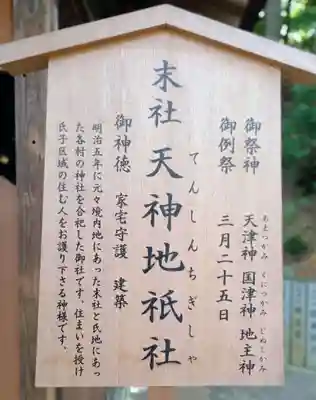 御祭神 天津神 国津神 地主神
あまつかみ くにつかみ じぬしかみ
御例祭 三月二十五日
末社 天神地祇社
てんしんちぎしゃ
御神徳 家宅守護 建築
明治五年に元々境内地にあった末社と氏地にあっ
た各村の神社を合祀した御社です。住まいを授け
氏子区域の住む人をお護り下さる神様です。